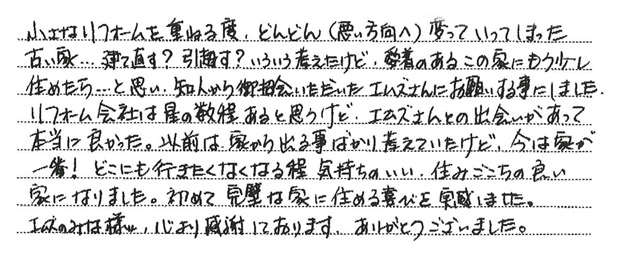 小さなリフォームを重ねる度、どんどん(悪い方向へ)変っていってしまった
古い家…建て直す?引越す?いろいろ考えたけど、愛着のあるこの家にもう少し
住めたら…と思い、知人から御紹介いただいたエムズさんにお願いする事にしました。
リフォーム会社は星の数程あると思うけど、エムズさんとの出会いがあって
本当に良かった。以前は家から出る事ばかり考えていたけど、今は家が
一番!どこにも行きたくなくなる程気持ちのいい、住みごこちの良い
家になりました。初めて完璧な家に住める喜びを実感しました。
エムズのみな様に、心より感謝しております。ありがとうございました。